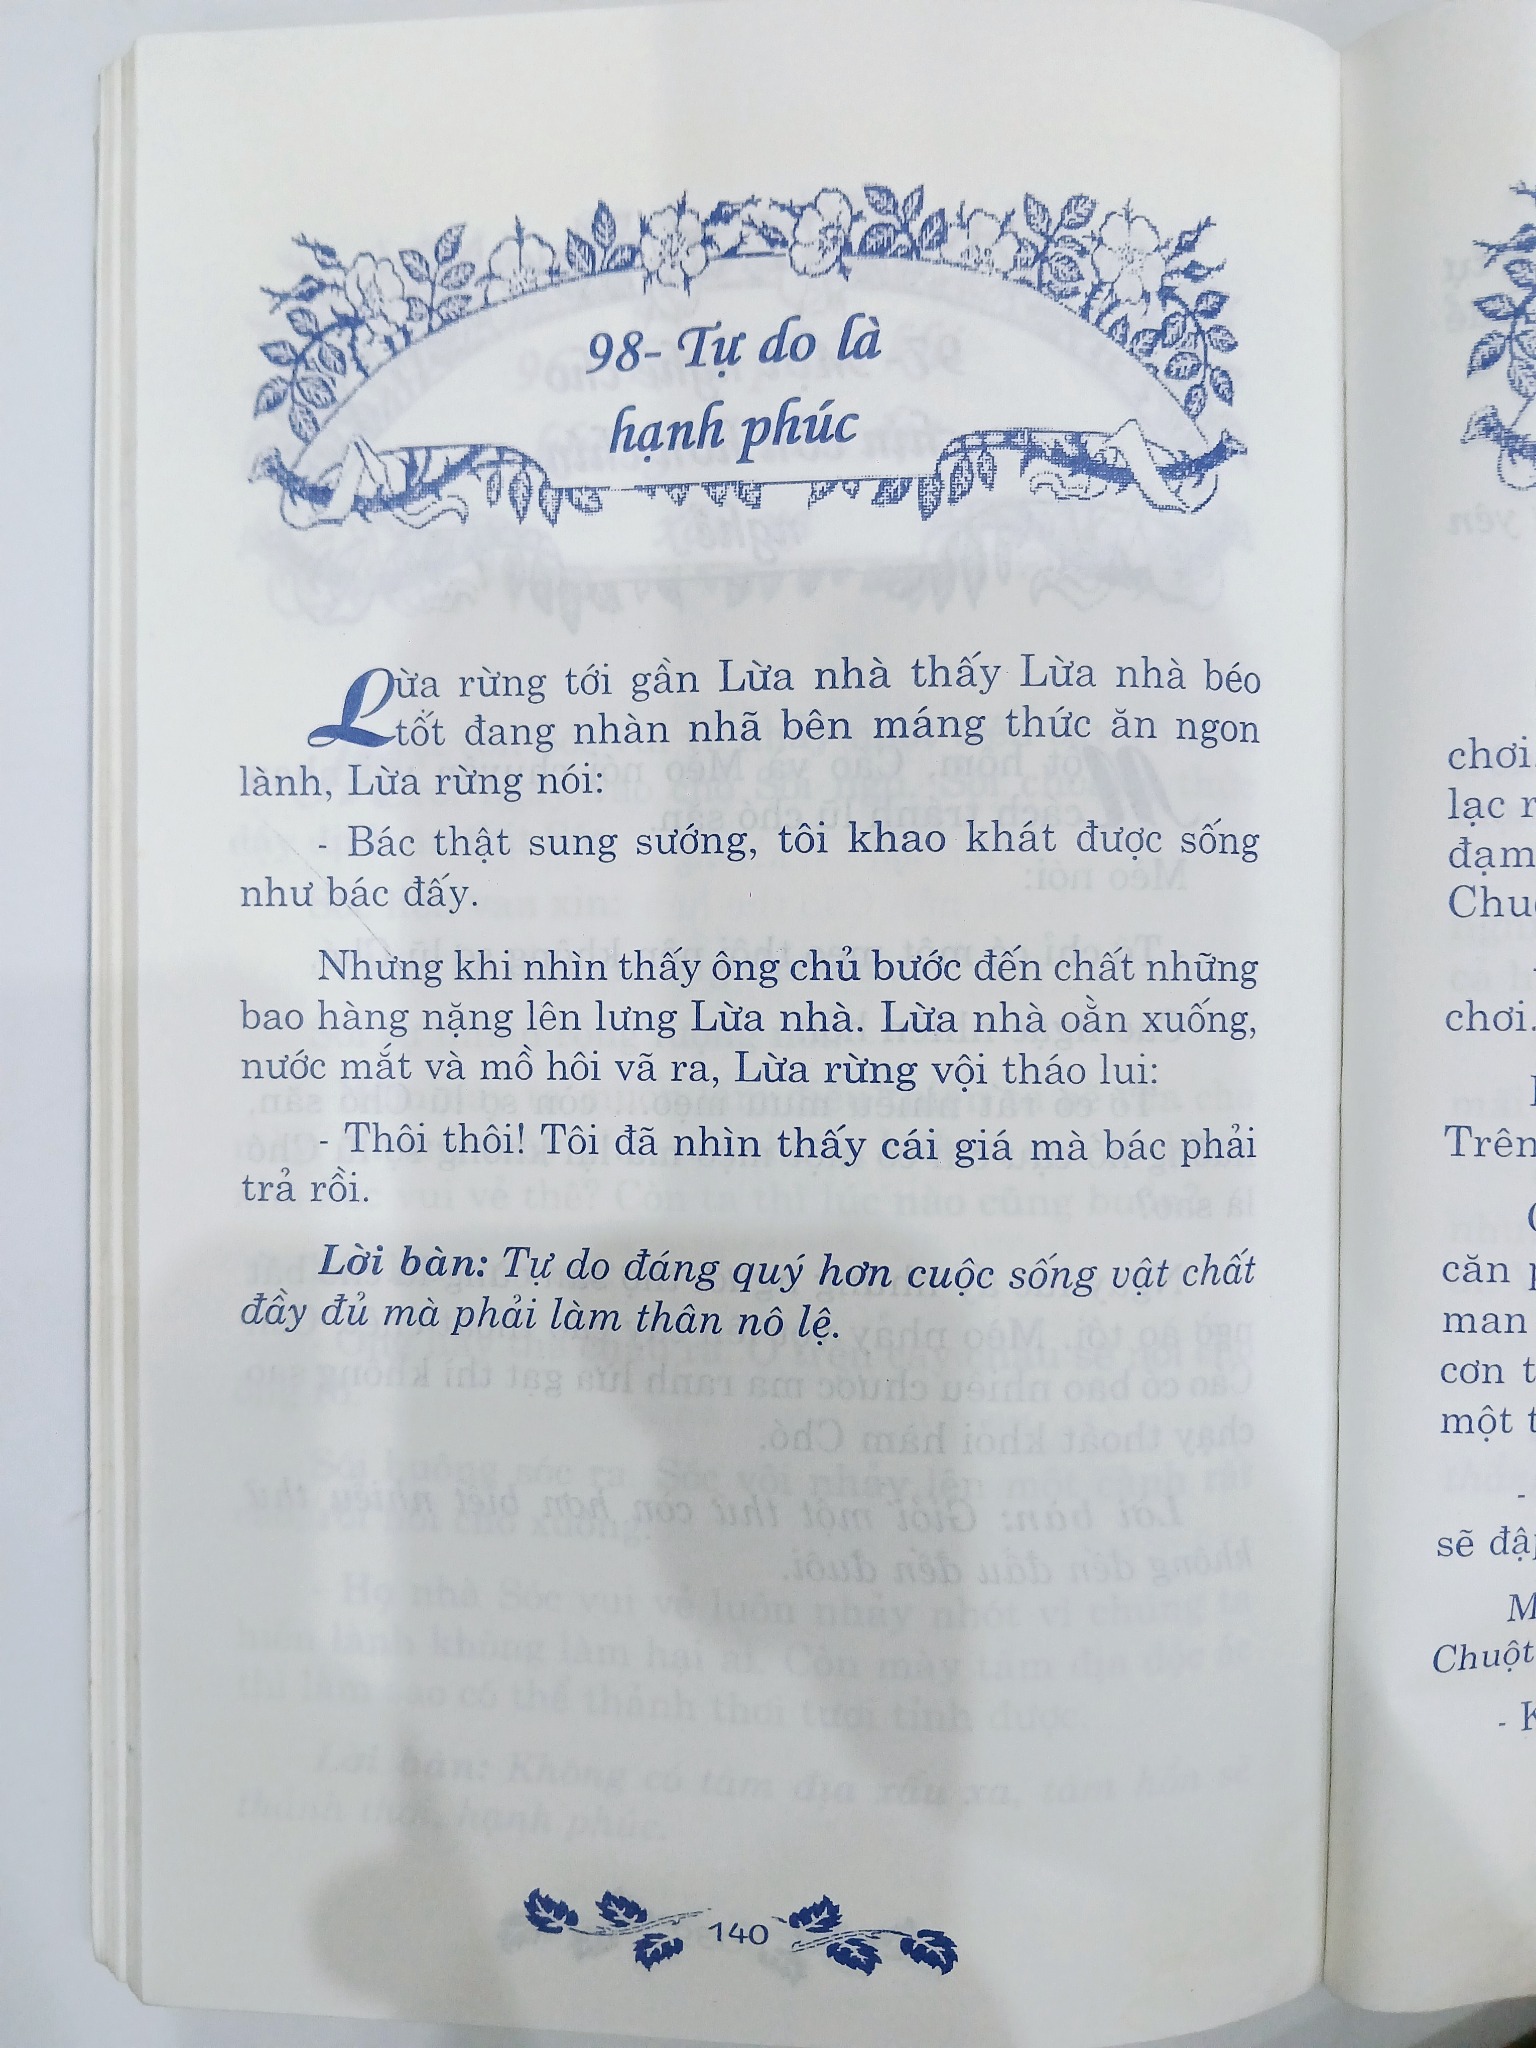 98- Tự do là
hạnh phúc
Lừa rừng tới gần Lừa nhà thấy Lừa nhà béo
tốt đang nhàn nhã bên máng thức ăn ngon
lành, Lừa rừng nói:
- Bác thật sung sướng, tôi khao khát được sống
như bác đấy.
Nhưng khi nhìn thấy ông chủ bước đến chất những
bao hàng nặng lên lưng Lừa nhà. Lừa nhà oằn xuống,
nước mắt và mồ hôi vã ra, Lừa rừng vội tháo lui:
- Thôi thôi! Tôi đã nhìn thấy cái giá mà bác phải
trả rồi.
Lời bàn: Tự do đáng quý hơn cuộc sống vật chất
đầy đủ mà phải làm thân nô lệ.
140
chơi.
lạc
đạm
chơi.
Trên
căn
man
cơn
một
-
sẽ
Chuột
-